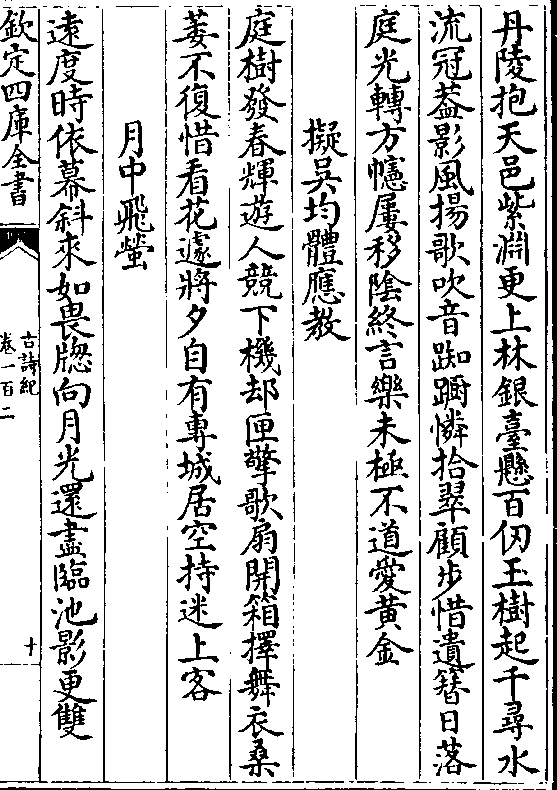 丹陵抱天邑紫淵更上林銀臺懸百仞玉樹起千尋水
流冠葢影風揚歌吹音踟躕憐拾翠顧步惜遺簪日落
庭光轉方幰屢移陰終言樂未極不道愛黄金
擬吳均體應教
庭樹發春輝遊人競下機却匣擎歌扇開箱擇舞衣桑
萎不復惜看花遽將夕自有專城居空持迷上客
月中飛螢
逺度時依幕斜來如畏牕向月光還盡臨池影更雙
欽定四庫全書
古詩紀
卷一百二
十